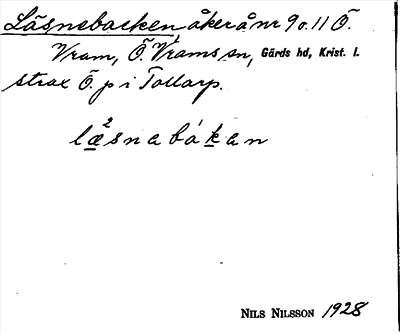 Läsnebacken åker å nr 9 o. 11 Ö.
Vram, Ö. Vrams sn, Gärds hd, Krist. l.
strax Ö. p i Tollarp.
læ²snabákan
NILS NILSSON 1928